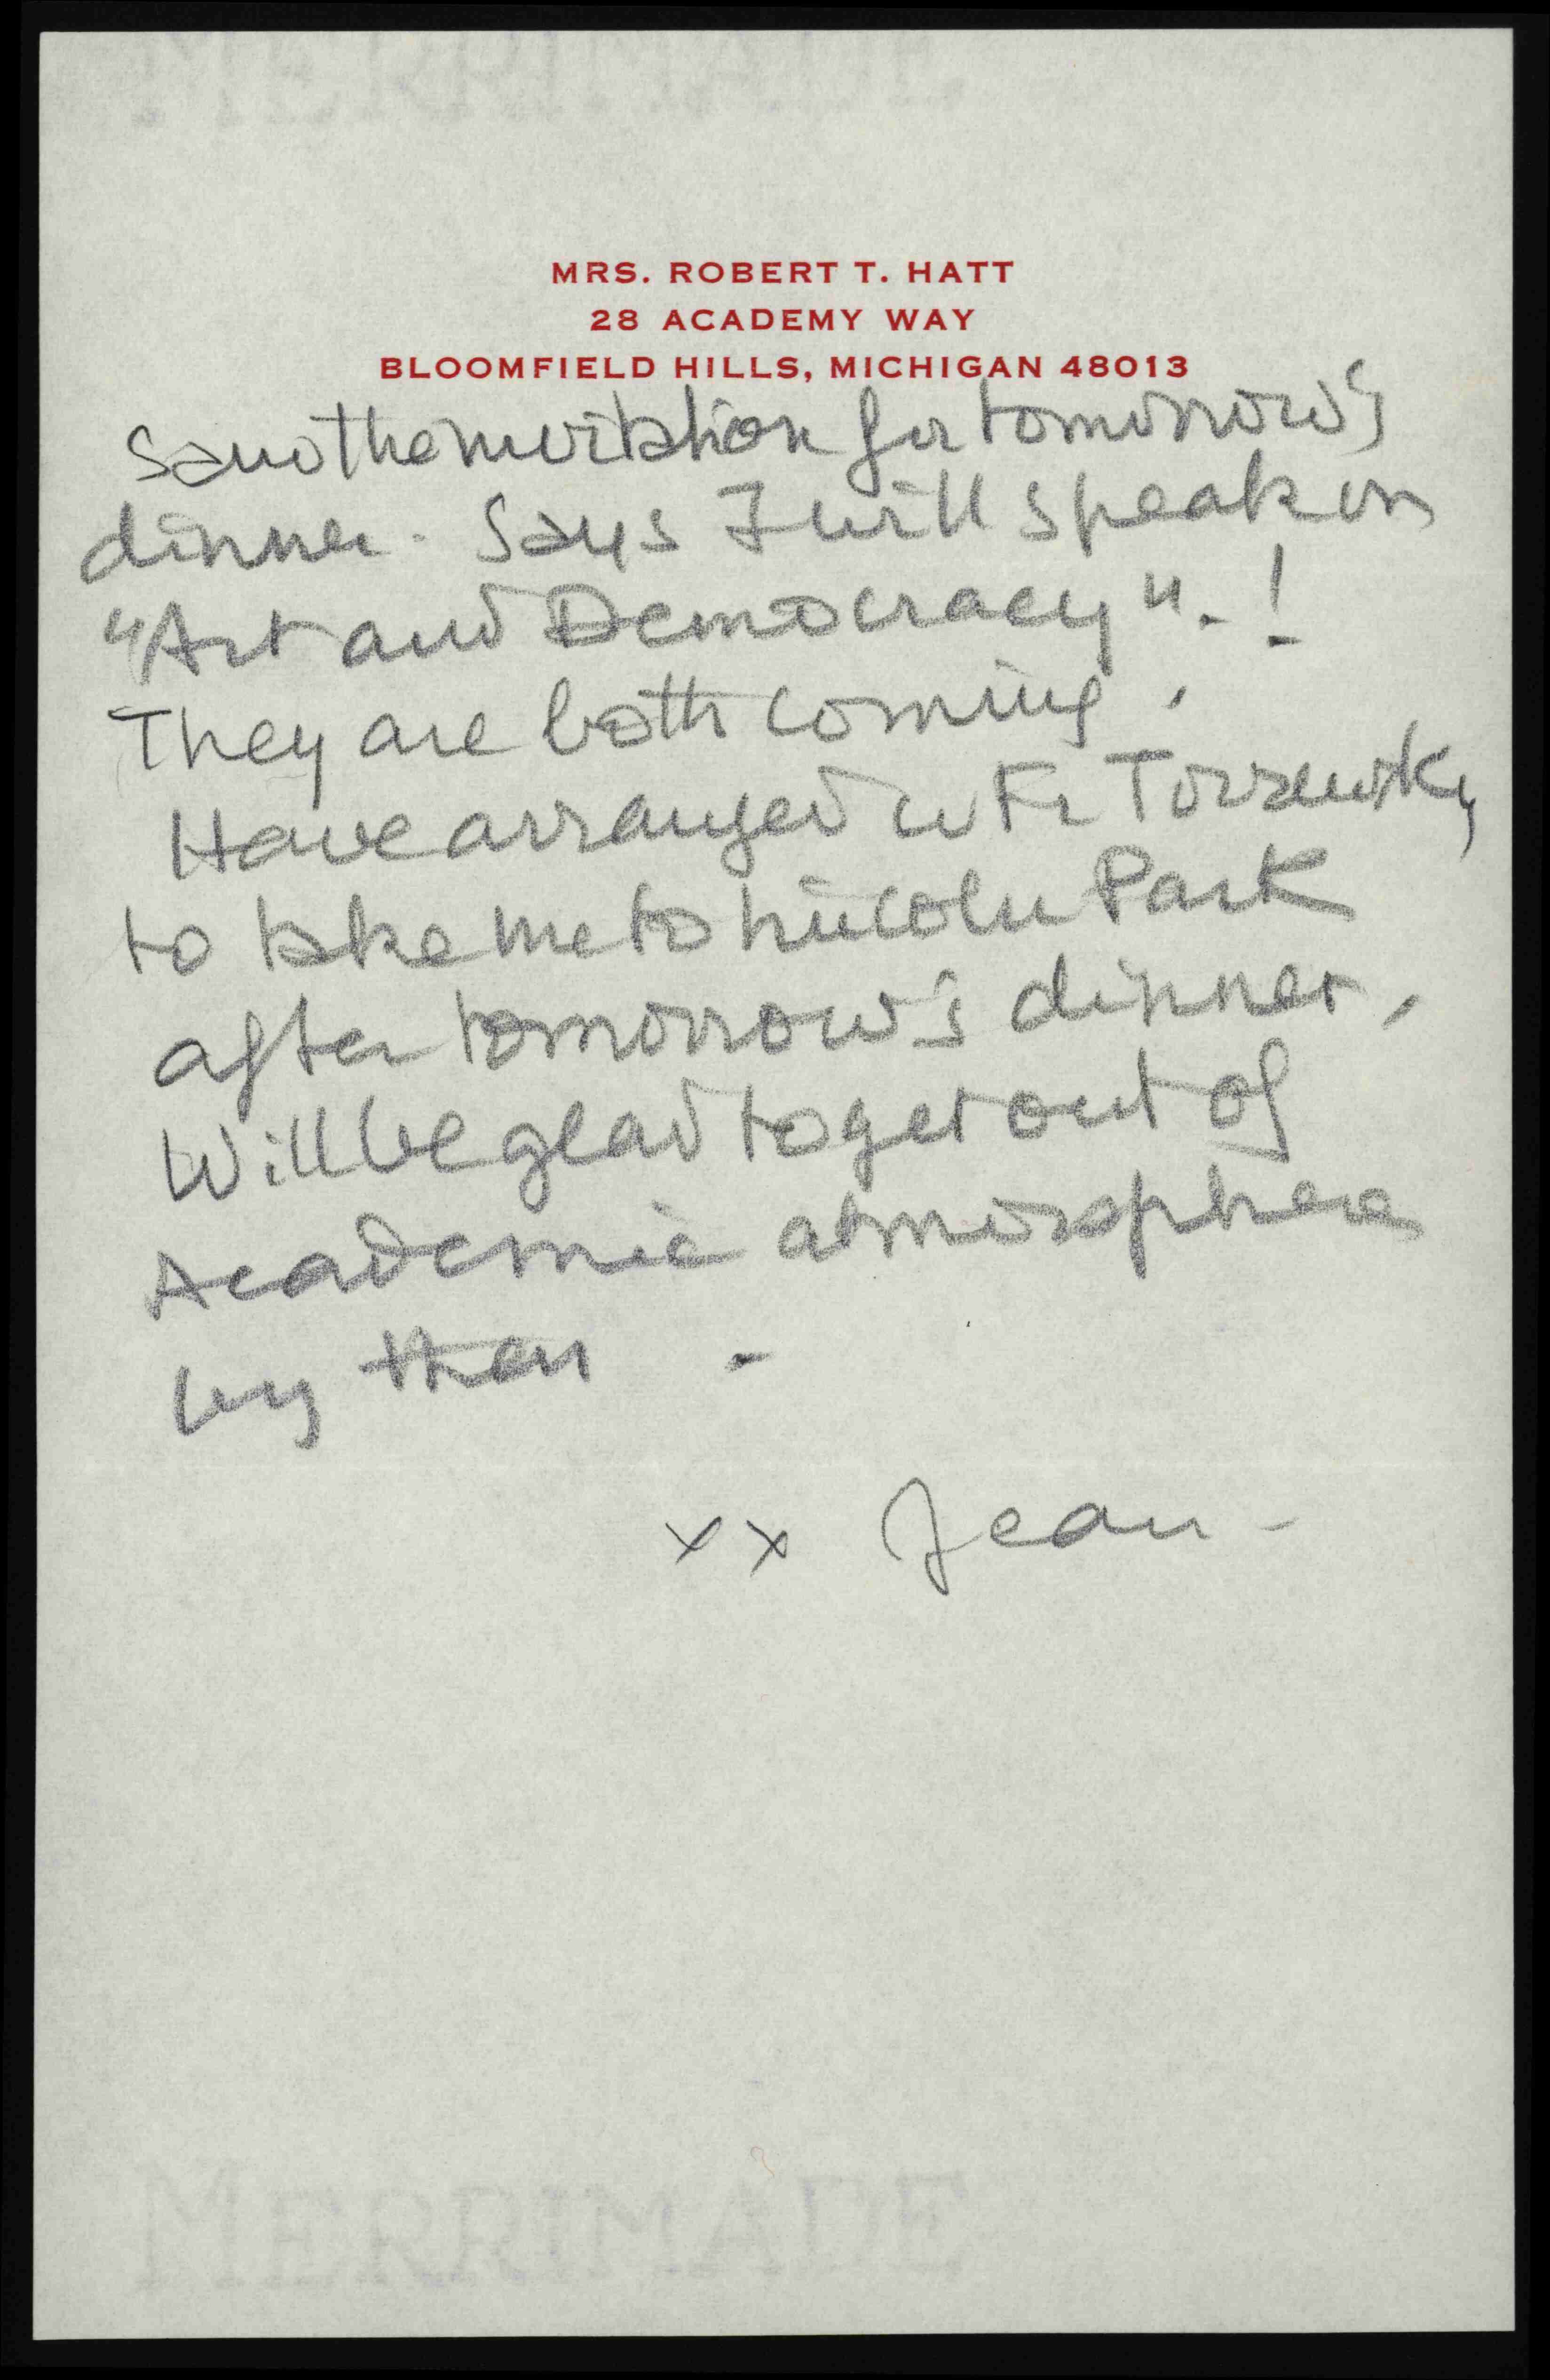 MERRIMADE
MRS. ROBERT T. HATT
28 ACADEMY WAY
BLOOMFIELD HILLS, MICHIGAN 48013
Saw the invitation for tomorrow's
dinner. Says I will speak on
"Art and Democracy". !
They are both coming.
Have arranged w Fr
to take me to Lincoln Park
after tomorrow's dinner.
Will be glad to get out of
Academic atmosphere
by then -
xx Jean -
MERRIMADE